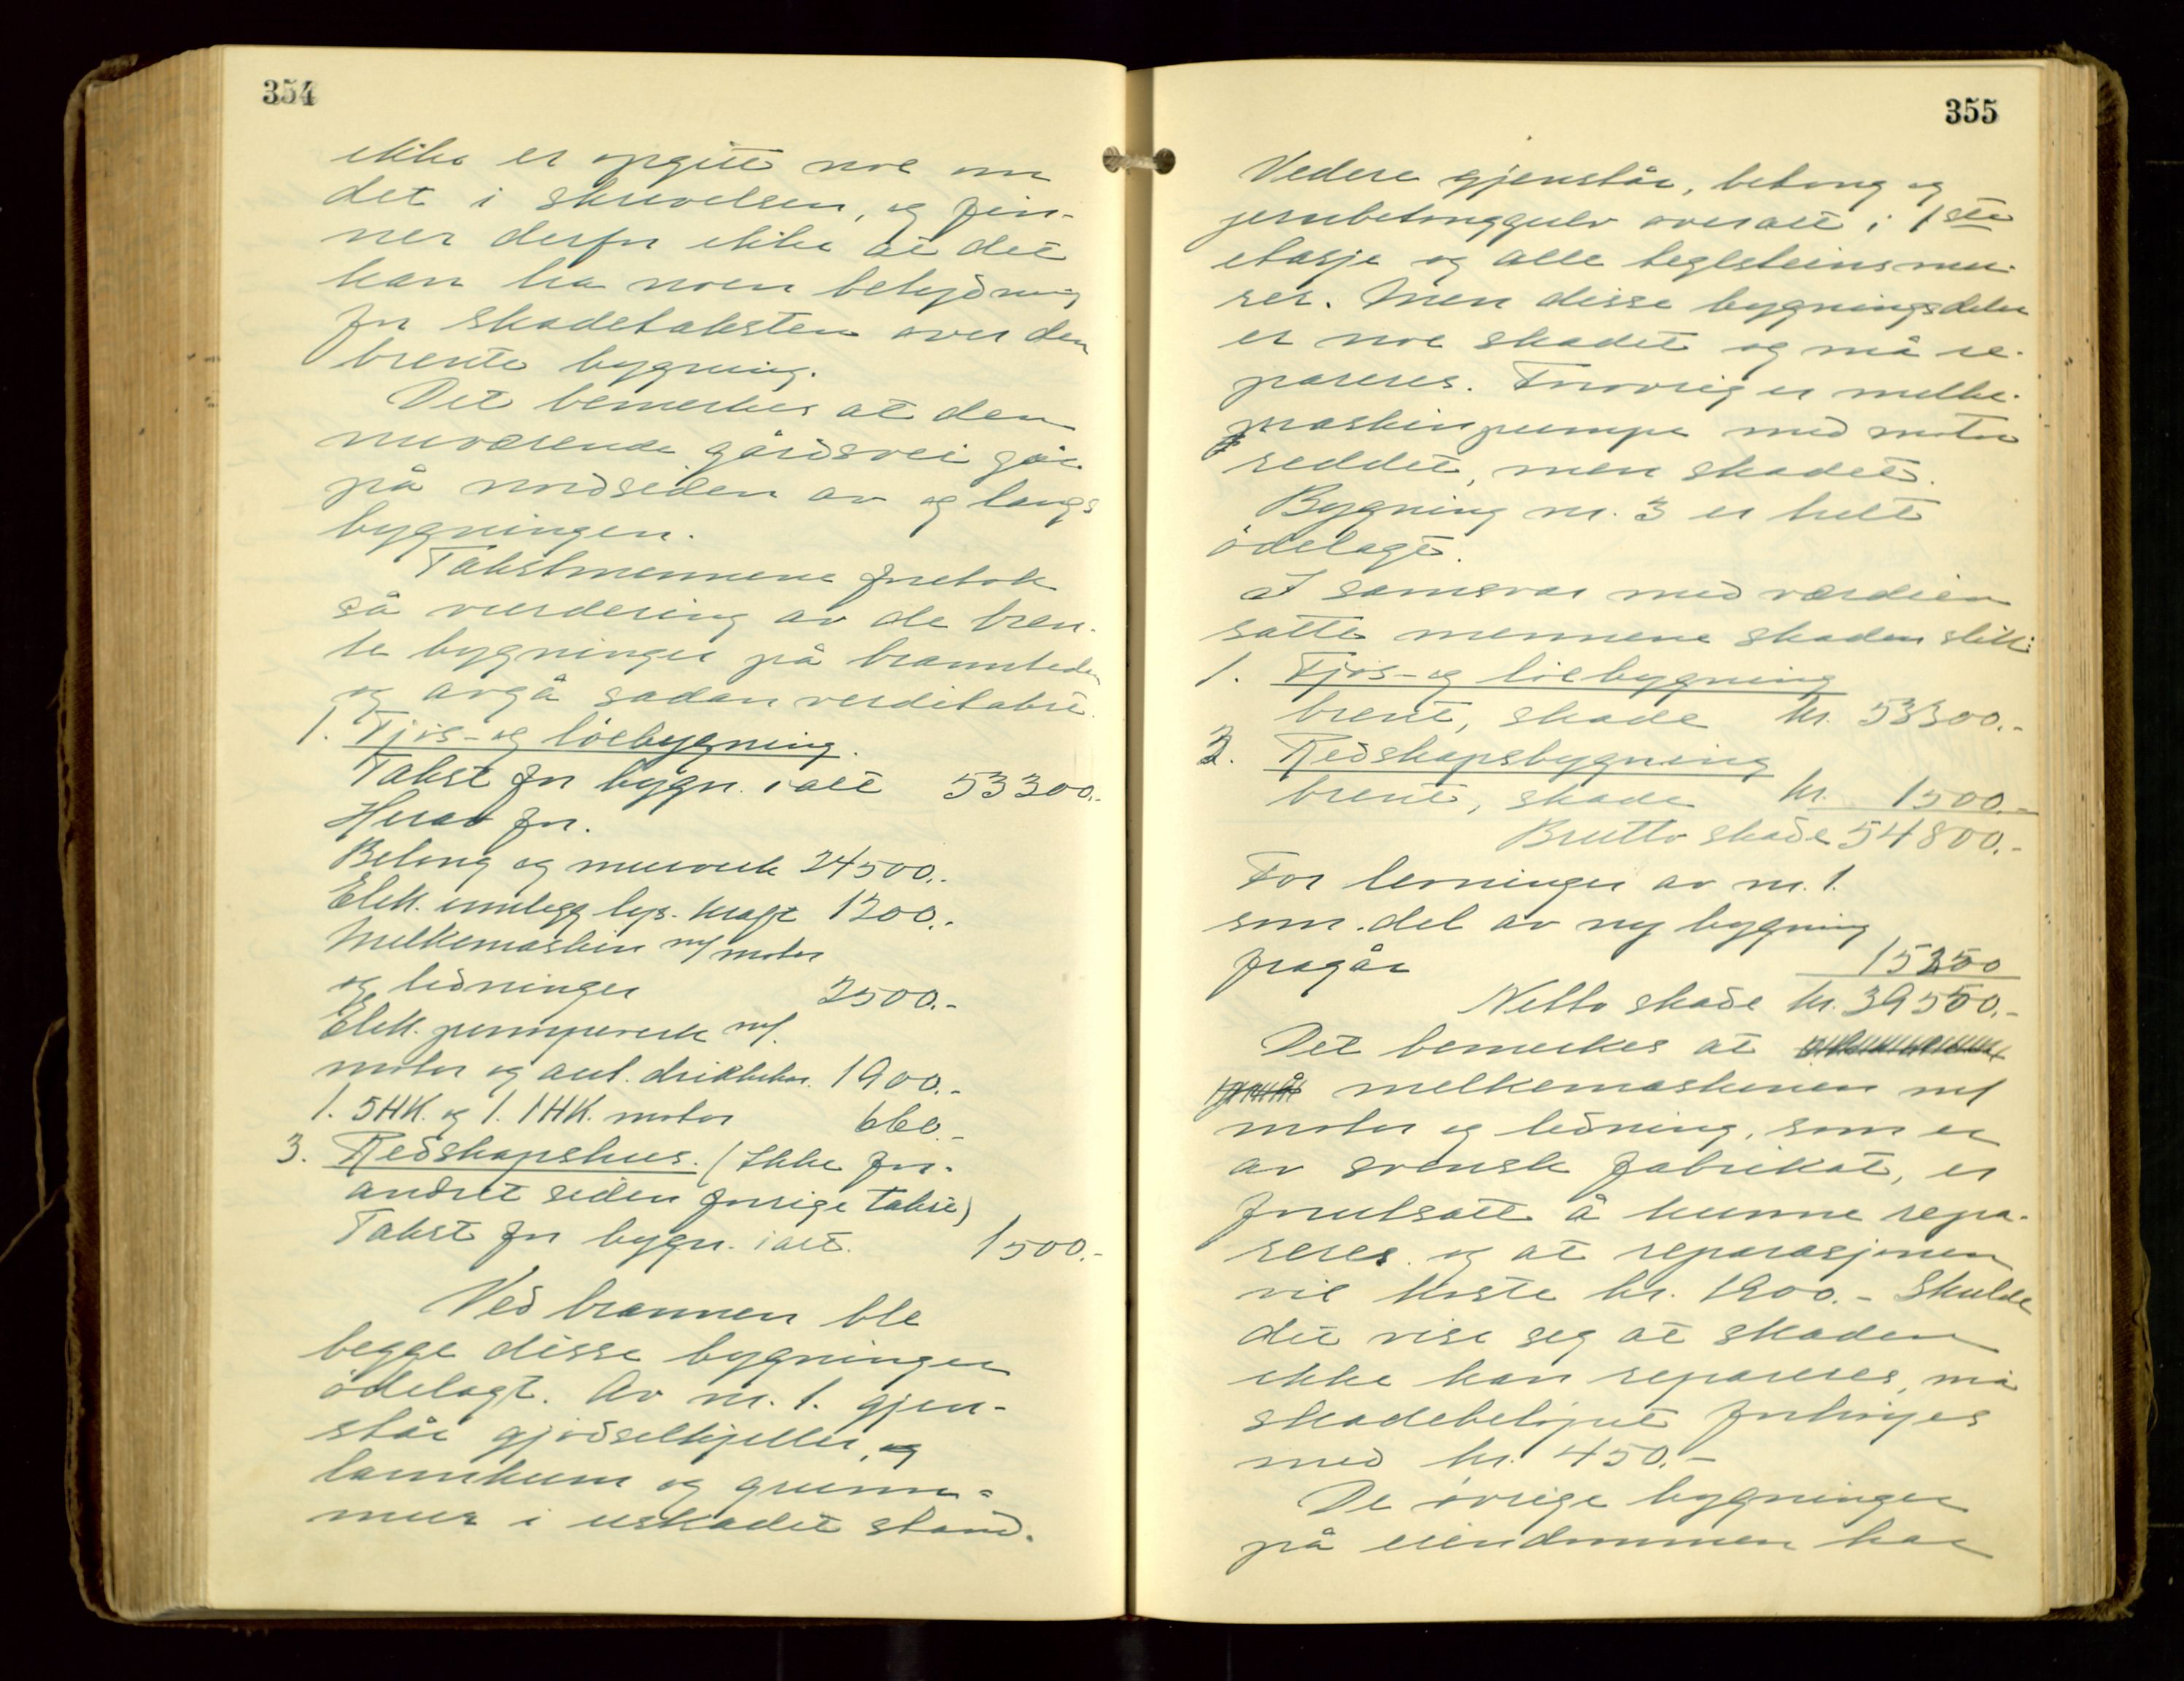 354
ikke er opgitt noe om
det i skrivelsen, og fin-
ner derfor ikke at det
kan ha noen betydning
for skadetaksten over den
brente bygning.
Det bemerkes at den
nuværende gårdsvei går
på nordsiden av og langs
bygningen.
Takstmennene foretok
så vurdering av de bren-
te bygninger på brannteden
og avgå sådan verditakst.
1. Fjös- og löebygning.
Takst for bygn. i alt 53300.-
Herav for.
Betong og murverk 24500.-
Elek. innlegg lys- kraft 1200.-
Melkemaskin m/ motor
og ledninger 2500.-
Elek. pumpeverk m/.
motor og aut. drikkekar. 1900.-
1. 5HK. og 1. 1HK. motor 660.-
3. Redskapshus. (Ikke for-
andret siden forrige takst)
Takst for bygn. i alt. 1500.-
Ved brannen ble
begge disse bygninger
ödelagt. Av nr. 1. gjen-
står gjödselkjeller, og
lannkum og grunn-
mur i uskadet stand.
355
Videre gjenstår, betong og
jernbetonggulv overalt i 1ste
etasje og alle teglsteinsmu-
rer. Men disse bygningsdeler
er noe skadet og må re-
pareres. Forövrig er melke-
maskinpumpe med motor
reddet, men skadet.
Bygning nr. 3 er helt
ödelagt.
I samsvar med verdien
satte mennene skaden slik:
1. Fjös- og löebygning
brent, skade kr. 53300.-
3. Redskapsbygning
brent, skade kr. 1500.-
Brutto skade 54800.-
For levninger av nr. 1.
som del av ny bygning
fragår 15250
Netto skade kr. 39550.-
Det bemerkes at
melkemaskinen m/
motor og ledning, som er
av svensk fabrikat, er
forutsatt å kunne repa-
reres og at reparasjonen
vil koste kr. 1900.- Skulde
det vise seg at skaden
ikke kan repareres, må
skadebelöpet forhöyes
med kr. 450.-
De övrige bygninger
på eiendommen har